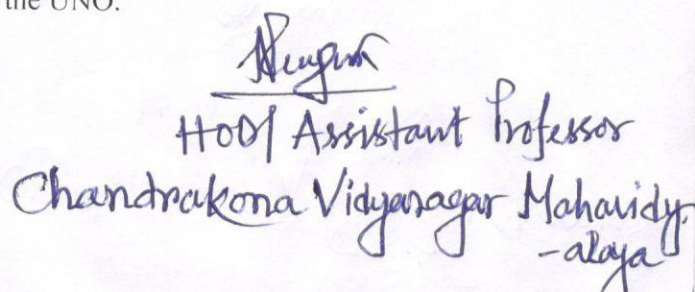 the UNO.
HOD/ Assistant Professor
Chandrakona Vidyasagar Mahavidy.
-alaya